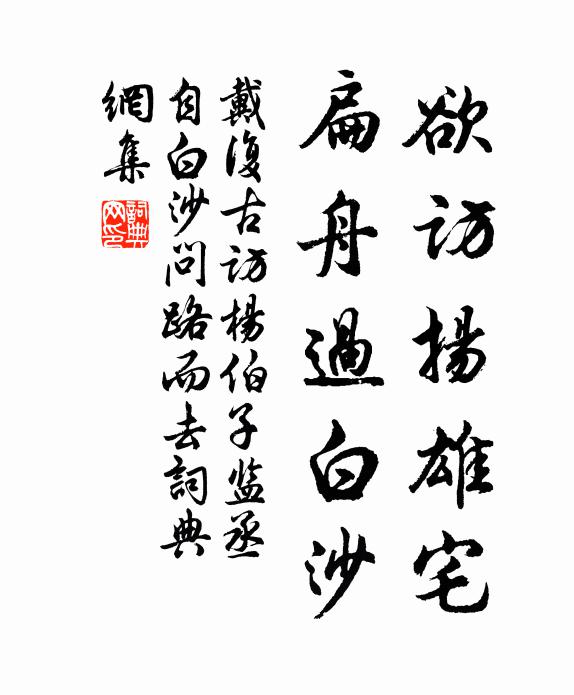 欲訪揚雄宅
扁舟過白沙
戴復古訪楊伯子监丞
自白沙問路而去詞典
網集
詞典
网印